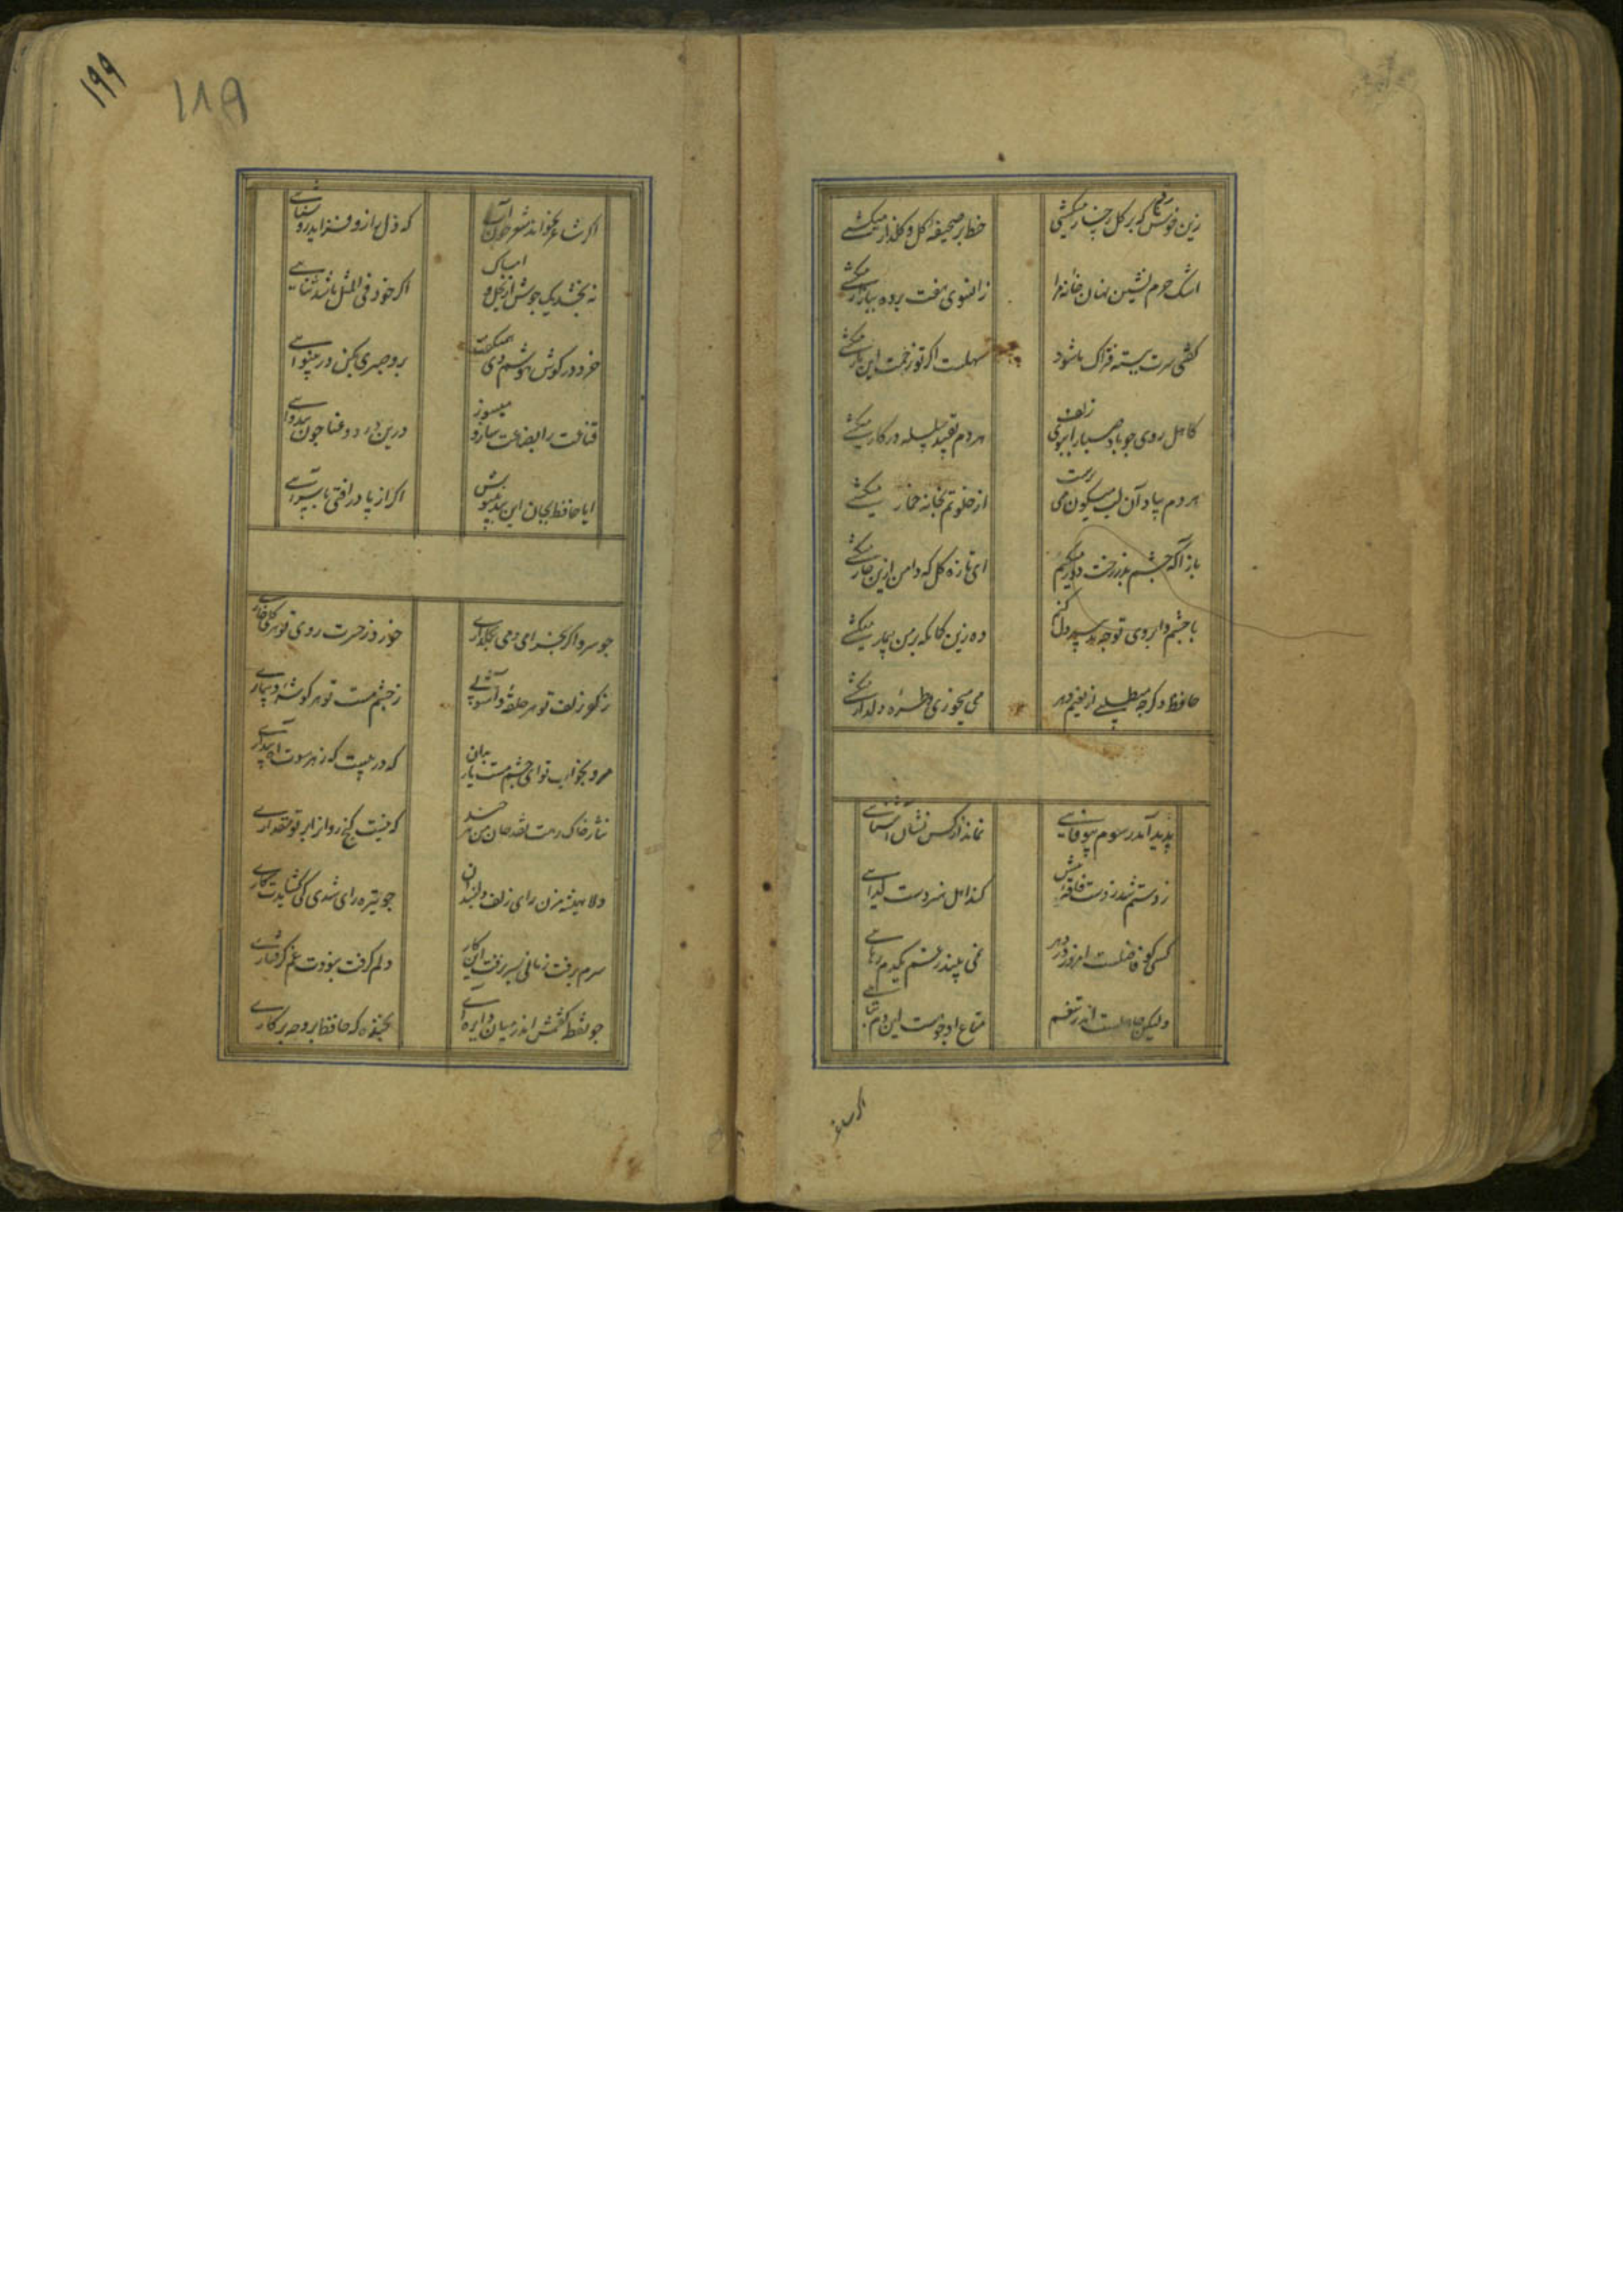 زین خوش رقم که بر گل رخسار میکشی
خط بر صحیفه گل و گلزار میکشی
اشک حرم نشین نهان خانه مرا
زانسوی هفت پرده ببازار میکشی
گفتی سرت بسته فتراک ما شود
سهلست اگر تو زحمت این بار میکشی
کاهل روی چو باد صبا را ببوی زلف
هر دم بقید سلسله در کار میکشی
هر دم بیاد آن لب میگون و چشم مست
از خلوتم بخانه خمار میکشی
باز آ که چشم بد ز رخت دور میکنم
ای تازه گل که دامن ازین خار میکشی
با چشم و ابروی تو چه تدبیر دل کنم
وه زین کمان که بر من بیمار میکشی
حافظ دگر چه میطلبی از نعیم دهر
می میخوری و طره دلدار میکشی
پدید آمد رسوم بیوفایی
نماند از کس نشان آشنایی
کنند اهل هنر دست گدایی
کسی کو فاضلست امروز در دهر
نمی بیند ز غم یکدم رهایی
ولیکن جاهلست اندر تنعم
متاع او چو هست این دم بهایی
اگر شاعر
۱۹۹
۱۸۹
اگر شاعر بخواند شعر چون آب
که دل را زو فزاید روشنایی
نه بخشندش جوی از بخل و امساک
اگر خود فی المثل باشد سنایی
خرد در گوش هوشم دی همیگفت
برو صبری بکن در بینوایی
قناعت را بضاعت ساز و میسوز
درین درد و عنا چون بینوایی
ایا حافظ بجان این پند بنیوش
که گر از پا در افتی با سر آیی
چو سرو اگر بخرامی دمی بگلزاری
خورد ز حسرت روی تو هر گلی خاری
ز کفر زلف تو هر حلقه و آشوبی
ز چشم مست تو هر گوشه و بیماری
مرو بخواب تو ای چشم مست یار بدان
که در پیست ز هر سوت آه بیداری
نثار خاک رهت نقد جان من هر چند
که نیست گنج روان را بر تو مقداری
دلا همیشه مزن رای زلف دلبندان
چو تیره رای شدی کی گشایدت کاری
سرم برفت زمانی بسر نرفت این کار
دلم گرفت نبودت غم گرفتاری
چو نقطه گفتمش اندر میان دایره آی
بخنده گفت که حافظ برو چه پرگاری